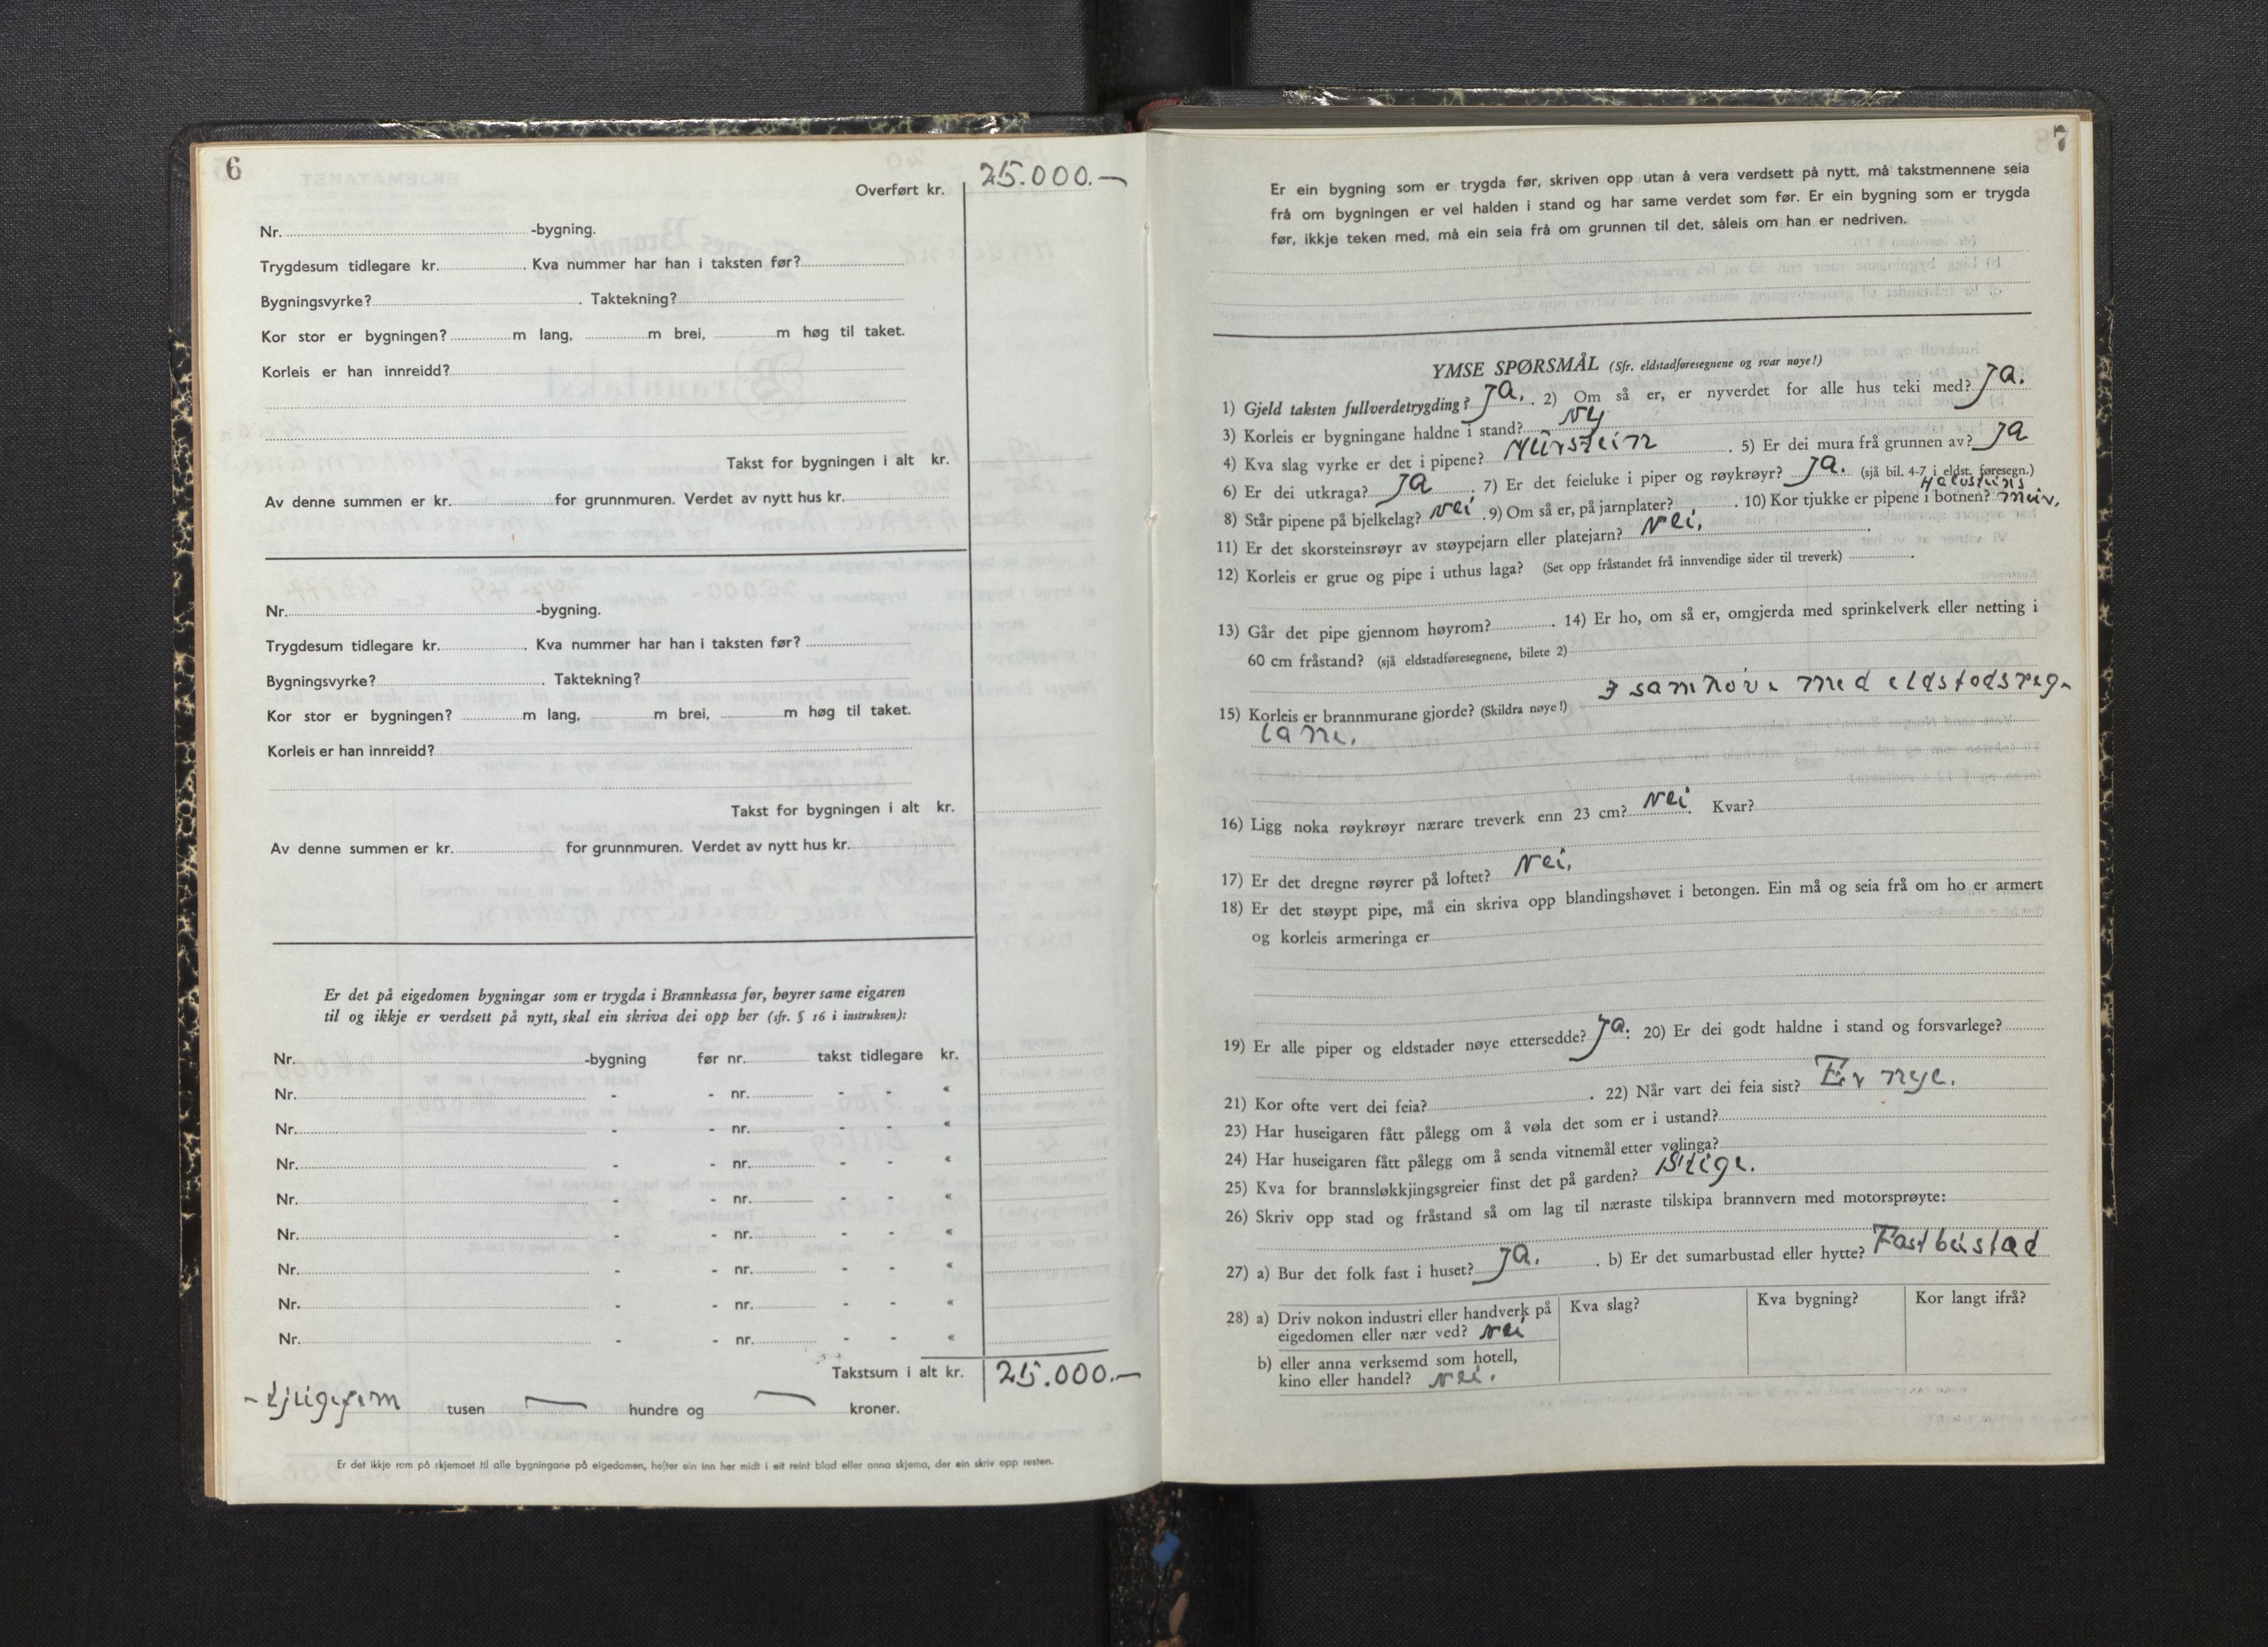 6
Overført kr. 25.000.-
Nr. -bygning.
Trygdesum tidlegare kr. . Kva nummer har han i taksten før?
Bygningsvyrke? . Taktekning?
Kor stor er bygningen? m lang, m brei, m høg til taket.
Korleis er han innreidd?
Takst for bygningen i alt kr.
Av denne summen er kr. for grunnmuren. Verdet av nytt hus kr.
Nr. -bygning.
Trygdesum tidlegare kr. . Kva nummer har han i taksten før?
Bygningsvyrke? . Taktekning?
Kor stor er bygningen? m lang, m brei, m høg til taket.
Korleis er han innreidd?
Takst for bygningen i alt kr.
Av denne summen er kr. for grunnmuren. Verdet av nytt hus kr.
Er det på eigedomen bygningar som er trygda i Brannkassa før, høyrer same eigaren
til og ikkje er verdsett på nytt, skal ein skriva dei opp her (sfr. § 16 i instruksen):
Nr. -bygning før nr. takst tidlegare kr.
Nr. - - nr. - - «
Nr. - - nr. - - «
Nr. - - nr. - - «
Nr. - - nr. - - «
Nr. - - nr. - - «
Nr. - - nr. - - «
Nr. - - nr. - - «
Nr. - - nr. - - «
Takstsum i alt kr. 25.000.-
- tjugefem tusen — hundre og — kroner.
Er det ikkje rom på skjemaet til alle bygningane på eigedomen, hefter ein inn her midt i eit reint blad eller anna skjema, der ein skriv opp resten.
7
Er ein bygning som er trygda før, skriven opp utan å vera verdsett på nytt, må takstmennene seia
frå om bygningen er vel halden i stand og har same verdet som før. Er ein bygning som er trygda
før, ikkje teken med, må ein seia frå om grunnen til det, såleis om han er nedriven.
YMSE SPØRSMÅL (Sfr. eldstadføresegnene og svar nøye!)
1) Gjeld taksten fullverdetrygding? Ja. . 2) Om så er, er nyverdet for alle hus teki med? Ja.
3) Korleis er bygningane haldne i stand? Ny
4) Kva slag vyrke er det i pipene? Murstein . 5) Er dei mura frå grunnen av? Ja
6) Er dei utkraga? Ja . 7) Er det feieluke i piper og røykrøyr? Ja. (sjå bil. 4-7 i eldst. føresegn.)
8) Står pipene på bjelkelag? Nei . 9) Om så er, på jarnplater? . 10) Kor tjukke er pipene i botnen? Halvsteins mur.
11) Er det skorsteinsrøyr av støypejarn eller platejarn? Nei. .
12) Korleis er grue og pipe i uthus laga? (Set opp fråstandet frå innvendige sider til treverk) .
13) Går det pipe gjennom høyrom? . 14) Er ho, om så er, omgjerda med sprinkelverk eller netting i
60 cm fråstand? (sjå eldstadføresegnene, bilete 2)
15) Korleis er brannmurane gjorde? (Skildra nøye!) I samhøve med eldstadsreg-
lane.
16) Ligg noka røykrøyr nærare treverk enn 23 cm? Nei . Kvar?
17) Er det dregne røyrer på loftet? Nei.
18) Er det støypt pipe, må ein skriva opp blandingshøvet i betongen. Ein må og seia frå om ho er armert
og korleis armeringa er
19) Er alle piper og eldstader nøye ettersedde? Ja. . 20) Er dei godt haldne i stand og forsvarlege?
21) Kor ofte vert dei feia? . 22) Når vart dei feia sist? Er nye.
23) Har huseigaren fått pålegg om å vøla det som er i ustand?
24) Har huseigaren fått pålegg om å senda vitnemål etter vølinga?
25) Kva for brannsløkkjingsgreier finst det på garden? Stige.
26) Skriv opp stad og fråstand så om lag til næraste tilskipa brannvern med motorsprøyte:
27) a) Bur det folk fast i huset? Ja. . b) Er det sumarbustad eller hytte? Fast bustad
28) a) Driv nokon industri eller handverk på
eigedomen eller nær ved? Nei
Kva slag?
Kva bygning?
Kor langt ifrå?
b) eller anna verksemd som hotell,
kino eller handel? Nei.